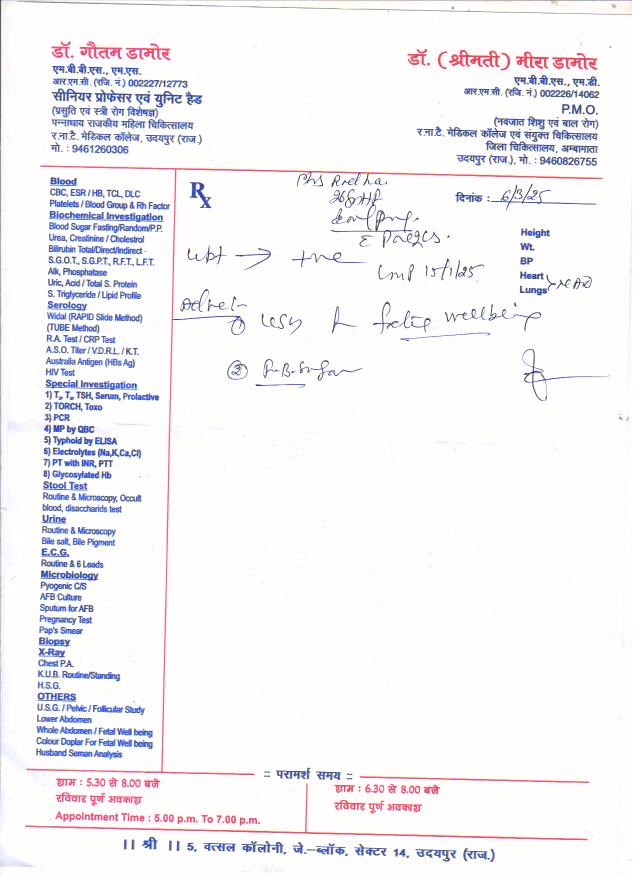 डॉ. गौतम डामोर
एम.बी.बी.एस., एम.एस.
आर.एम.सी. (रजि. नं.) 002227/12773
सीनियर प्रोफेसर एवं युनिट हैड
(प्रसुति एवं स्त्री रोग विशेषज्ञ)
पन्नाधाय राजकीय महिला चिकित्सालय
र.ना.टै. मेडिकल कॉलेज, उदयपुर (राज.)
मो. : 9461260306
डॉ. (श्रीमती) मीरा डामोर
एम.बी.बी.एस., एम.डी.
आर.एम.सी. (रजि. नं.) 002226/14062
P.M.O.
(नवजात शिशु एवं बाल रोग)
र.ना.टै. मेडिकल कॉलेज एवं संयुक्त चिकित्सालय
जिला चिकित्सालय, अम्बामाता
उदयपुर (राज.), मो. : 9460826755
Blood
CBC, ESR / HB, TCL, DLC
Platelets / Blood Group & Rh Factor
Biochemical Investigation
Blood Sugar Fasting/Random/P.P.
Urea, Creatinine / Cholestrol
Bilirubin Total/Direct/Indirect -
S.G.O.T., S.G.P.T., R.F.T., L.F.T.
Alk, Phosphatase
Uric, Acid / Total S. Protein
S. Triglyceride / Lipid Profile
Serology
Widal (RAPID Slide Method)
(TUBE Method)
R.A. Test / CRP Test
A.S.O. Titer / V.D.R.L. / K.T.
Australia Antigen (HBs Ag)
HIV Test
Special Investigation
1) T₃, T₄, TSH, Serum, Prolactive
2) TORCH, Toxo
3) PCR
4) MP by QBC
5) Typhoid by ELISA
6) Electrolytes (Na,K,Ca,Cl)
7) PT with INR, PTT
8) Glycosylated Hb
Stool Test
Routine & Microscopy, Occult
blood, disaccharids test
Urine
Routine & Microscopy
Bile salt, Bile Pigment
E.C.G.
Routine & 6 Leads
Microbiology
Pyogenic C/S
AFB Culture
Sputum for AFB
Pregnancy Test
Pap's Smear
Biopsy
X-Ray
Chest P.A.
K.U.B. Routine/Standing
H.S.G.
OTHERS
U.S.G. / Pelvic / Follicular Study
Lower Abdomen
Whole Abdomen / Fetal Well being
Colour Doplar For Fetal Well being
Husband Seman Analysis
Rx
दिनांक : 6/3/25
Height
Wt.
BP
Heart
Lungs
NAD
UPT → +ve
LMP 15/1/25
① USG wellbeing
② R.B. Sugar
:: परामर्श समय ::
शाम : 5.30 से 8.00 बजे
रविवार पूर्ण अवकाश
Appointment Time : 5.00 p.m. To 7.00 p.m.
शाम : 6.30 से 8.00 बजे
रविवार पूर्ण अवकाश
|| श्री || 5, वत्सल कॉलोनी, जे.–ब्लॉक, सेक्टर 14, उदयपुर (राज.)